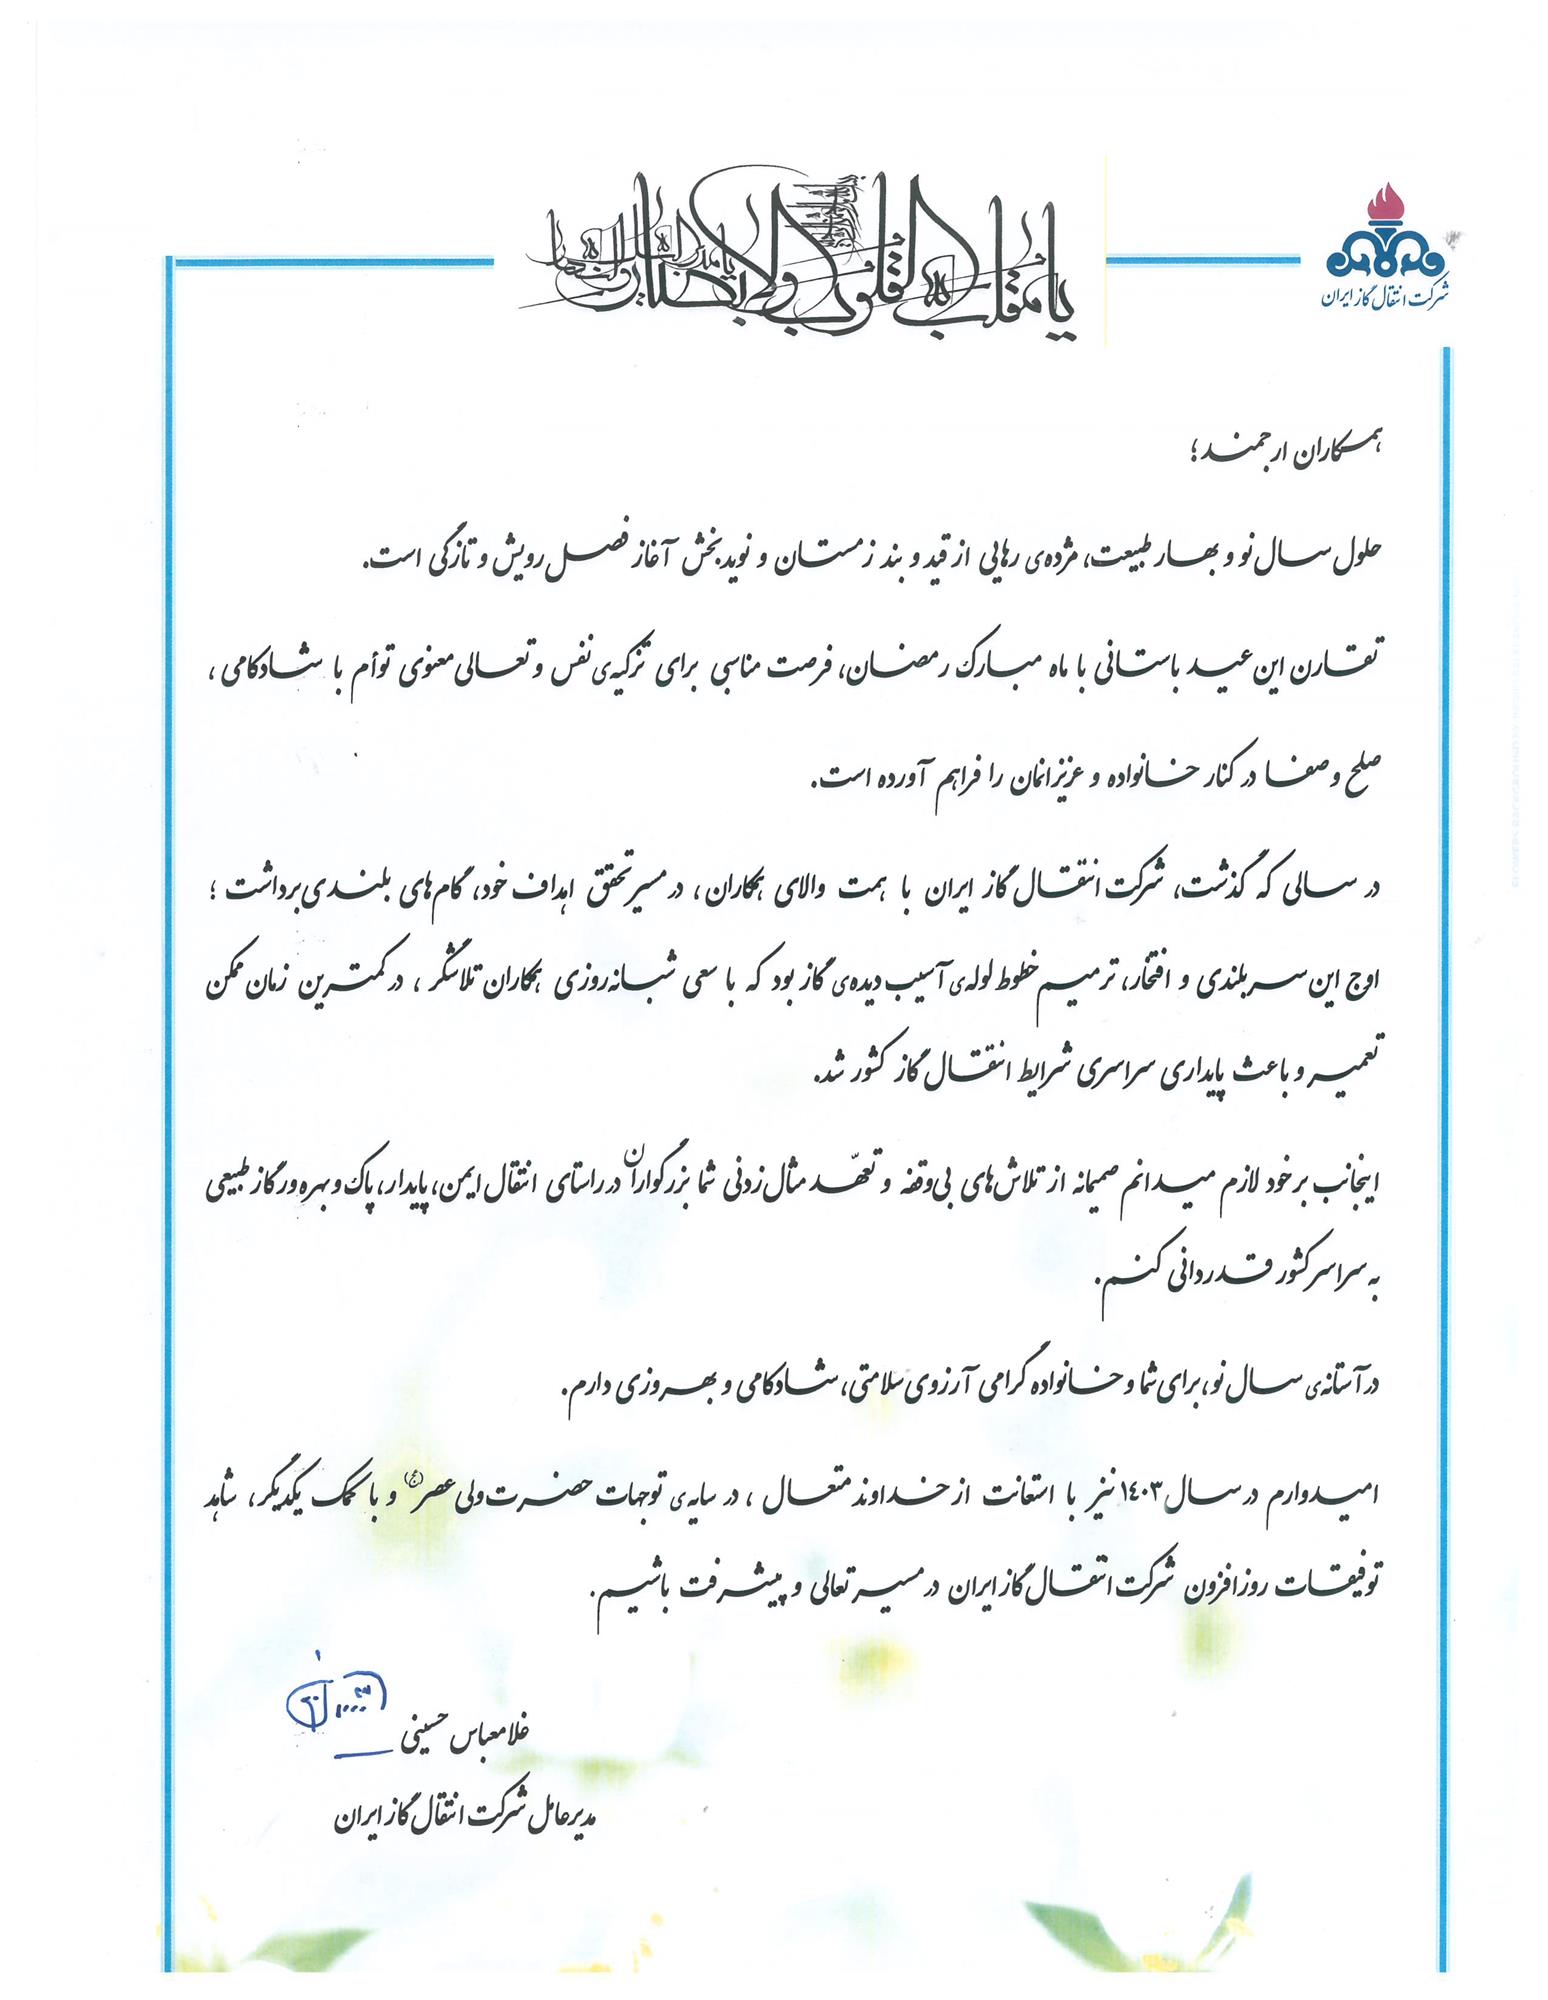 یا مقلب القلوب و الابصار یا مدبر اللیل و النهار
شرکت انتقال گاز ایران
همکاران ارجمند؛
حلول سال نو و بهار طبیعت، مژده‌ی رهایی از قید و بند زمستان و نویدبخش آغاز فصل رویش و تازگی است.
تقارن این عید باستانی با ماه مبارک رمضان، فرصت مناسبی برای تزکیه‌ی نفس و تعالی معنوی توأم با شادکامی ،
صلح و صفا در کنار خانواده و عزیزانمان را فراهم آورده است.
در سالی که گذشت، شرکت انتقال گاز ایران با همت والای همکاران ، در مسیر تحقق اهداف خود، گام‌های بلندی برداشت ؛
اوج این سربلندی و افتخار، ترمیم خطوط لوله‌ی آسیب دیده‌ی گاز بود که با سعی شبانه‌روزی همکاران تلاشگر ، در کمترین زمان ممکن
تعمیر و باعث پایداری سراسری شرایط انتقال گاز کشور شد.
اینجانب بر خود لازم میدانم صمیمانه از تلاش‌های بی‌وقفه و تعهّد مثال‌زدنی شما بزرگواران در راستای انتقال ایمن، پایدار، پاک و بهره‌ور گاز طبیعی
به سراسر کشور قدردانی کنم.
در آستانه‌ی سال نو، برای شما و خانواده گرامی آرزوی سلامتی، شادکامی و بهروزی دارم.
امیدوارم در سال ۱۴۰۳ نیز با استعانت از خداوند متعال ، در سایه‌ی توجهات حضرت ولی عصر(عج) و با کمک یکدیگر ، شاهد
توفیقات روزافزون شرکت انتقال گاز ایران در مسیر تعالی و پیشرفت باشیم.
غلامعباس حسینی
مدیرعامل شرکت انتقال گاز ایران